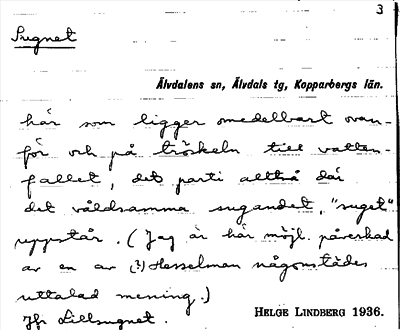 3
Sugnet
Älvdalens sn, Älvdals tg, Kopparbergs län.
här som ligger omedelbart ovan-
för och på tröskeln till vatten-
fallet, det parti alltså där
det våldsamma sugandet, "suget"
uppstår. (Jag är här möjl. påverkad
av en av (?) Hesselman någonstädes
uttalad mening.)
Jfr Lillsugnet.
HELGE LINDBERG 1936.